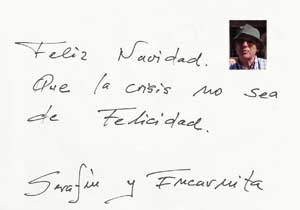 Feliz Navidad.
Que la crisis no sea
de Felicidad.
Serafín y Encarnita